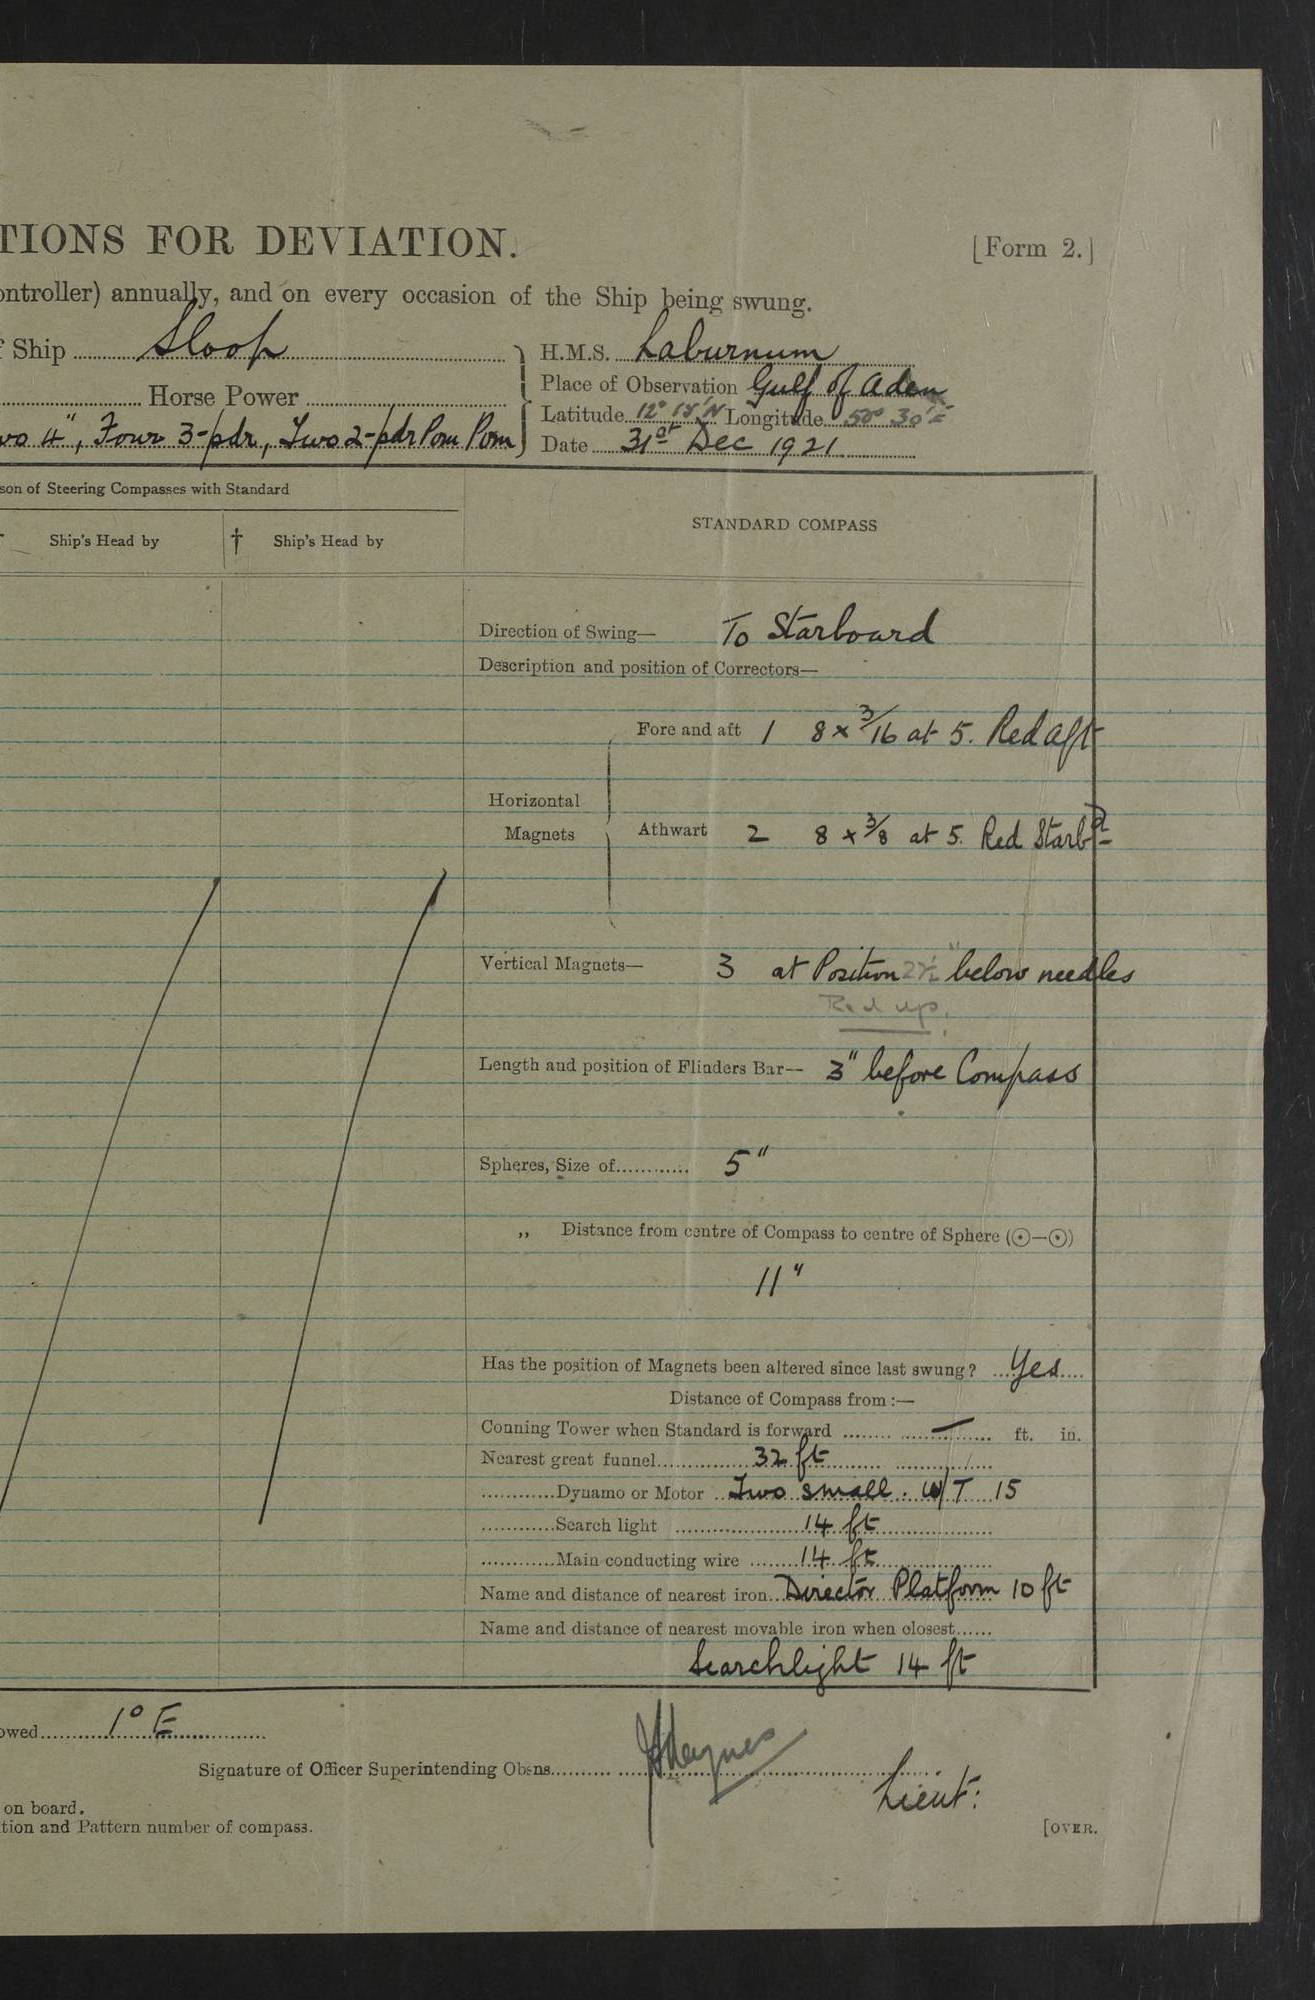 TIONS FOR DEVIATION.
[Form 2.]
ontroller) annually, and on every occasion of the Ship being swung.
f Ship Sloop
H.M.S. Laburnum
Horse Power
Place of Observation Gulf of Aden
Latitude 12° 18'N Longitude 50° 30'E
wo 4", Four 3-pdr, Two 2-pdr Pom Pom
Date 31st Dec 1921
son of Steering Compasses with Standard
STANDARD COMPASS
Ship's Head by
† Ship's Head by
Direction of Swing— To Starboard
Description and position of Correctors—
Fore and aft 1 8 × 3/16 at 5. Red aft
Horizontal
Magnets
Athwart 2 8 × 3/8 at 5. Red Starbd
Vertical Magnets— 3 at Position " below needles
Red up.
Length and position of Flinders Bar— 3" before Compass
Spheres, Size of 5"
„ Distance from centre of Compass to centre of Sphere (⊙—⊙)
11"
Has the position of Magnets been altered since last swung? Yes
Distance of Compass from :—
Conning Tower when Standard is forward — ft. in.
Nearest great funnel 32 ft
Dynamo or Motor Two small. W/T 15
Search light 14 ft
Main conducting wire 14 ft
Name and distance of nearest iron Director Platform 10 ft
Name and distance of nearest movable iron when closest
Searchlight 14 ft
owed 1° E
Signature of Officer Superintending Obsns. Haynes
Lieut:
on board.
tion and Pattern number of compass.
[OVER.